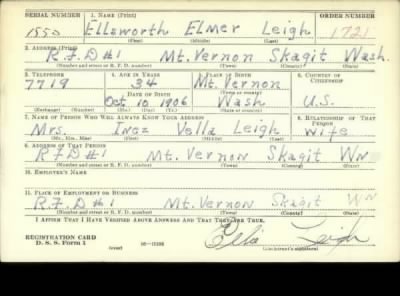 SERIAL NUMBER 1. NAME (Print) ORDER NUMBER
1550 Ellsworth Elmer Leigh 1721
(First) (Middle) (Last)
2. ADDRESS (Print)
R.F.D #1 Mt. Vernon Skagit Wash.
(Number and street or R. F. D. number) (Town) (County) (State)
3. TELEPHONE 4. AGE IN YEARS 5. PLACE OF BIRTH 6. COUNTRY OF CITIZENSHIP
7719 34 Mt. Vernon
DATE OF BIRTH (Town or county)
Oct 10 1906 Wash U.S.
(Exchange) (Number) (Mo.) (Day) (Yr.) (State or country)
7. NAME OF PERSON WHO WILL ALWAYS KNOW YOUR ADDRESS 8. RELATIONSHIP OF THAT PERSON
Mrs. Inez Vella Leigh Wife
(Mr., Mrs., Miss) (First) (Middle) (Last)
9. ADDRESS OF THAT PERSON
R.F.D #1 Mt. Vernon Skagit Wn
(Number and street or R. F. D. number) (Town) (County) (State)
10. EMPLOYER'S NAME
11. PLACE OF EMPLOYMENT OR BUSINESS
R.F.D #1 Mt. Vernon Skagit Wn
(Number and street or R. F. D. number) (Town) (County) (State)
I AFFIRM THAT I HAVE VERIFIED ABOVE ANSWERS AND THAT THEY ARE TRUE.
REGISTRATION CARD
D. S. S. Form 1 (over) Leigh
(Registrant's signature)